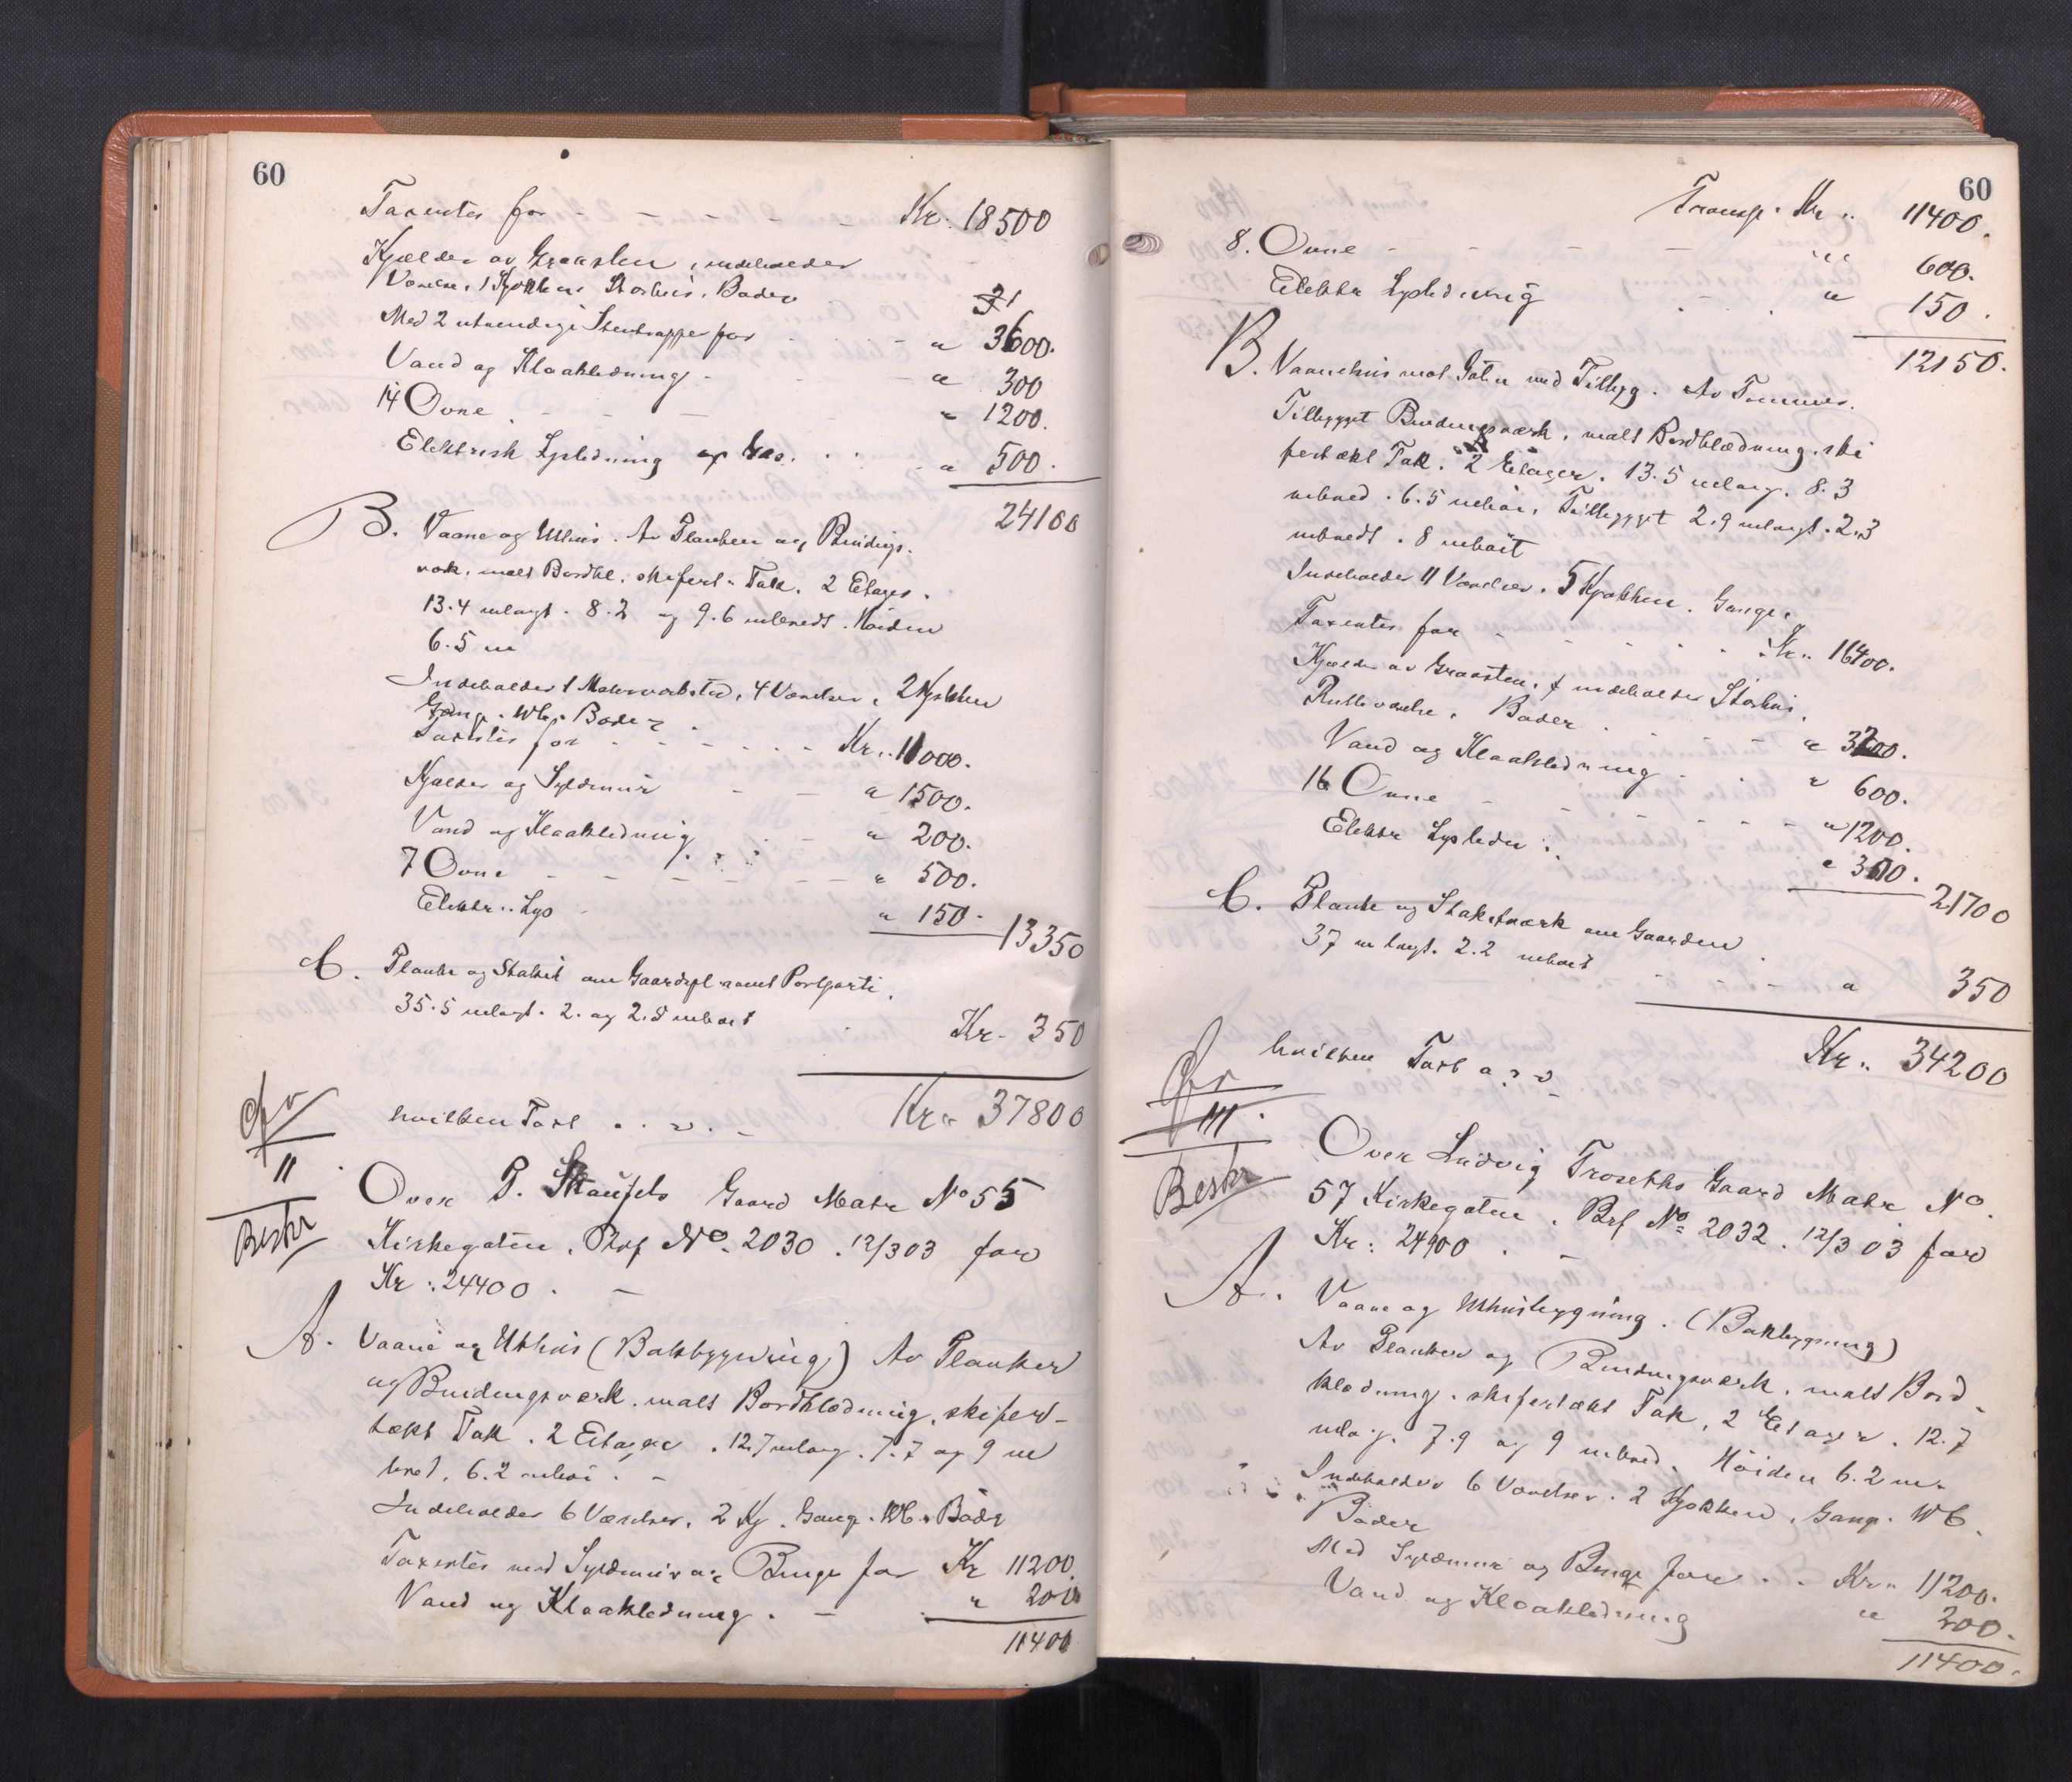 60
Taxertes for - - - - - Kr. 18500
Kjælder av Graasten, indeholder
Værelse, 1 Kjøkken Storhus, Boder
Med 2 utvendige Stentrapper for - - - " 3600.
Vand og Kloakledning - - " 300
14 Ovne - - - " 1200.
Elektrisk Lysledning og Gas. . . . " 500.
24100
B. Vaane og Uthus. Av Planker og Bindings-
værk, malt Bordkl. skifert. Tak. 2 Etager.
13.4 m langt. 8.2 og 9.6 m bredt. Høiden
6.5 m
Indeholder 1 Malerverksted, 4 Værelser, 2 Kjøkken
Gang. Wc. Boder
Taxertes for - - - - - Kr. 11000.
Kjælder og Syldmur - - " 1500.
Vand og Kloakledning - - " 200.
7 Ovne - - - - - - " 500.
Elektr. Lys " 150. 13350
C. Planke og Stakit om Gaardspl. samt Portparti.
35.5 m langt. 2. og 2.5 m høit Kr. 350
hvilken Taxt Kr. 37800
II
Beskr
Over P. Gaard Matr No 55
Kirkegaten. Brf No. 2030. 12/3 03 for
Kr. 24400. -
A. Vaane og Uthus (Bakbygning) Av Planker
og Bindingsværk. malt Bordklædning, skifer-
tækt Tak. 2 Etager. 12.7 m lang. 7.7 og 9 m
bred. 6.2 m høi. -
Indeholder 6 Værelser, 2 Kj. Gang. Wc. Boder
Taxertes med Syldmur og Binge for Kr 11200.
Vand og Kloakledning. - " 200
11400
60
Transp. Kr. 11400.
8. Ovne - - - - - " 600.
Elektr Lysledning - . " 150.
12150.
B. Vaanehus mot Gaten med Tilbyg. Av Tømmer.
Tilbygget Bindingsværk, malt Bordklædning, ski
fertækt Tak. 2 Etager. 13.5 m lang. 8.3
m bred. 6.5 m høi. Tilbygget 2.9 m langt. 2.3
m bredt. 8 m høit
Indeholder 11 Værelser. 5 Kjøkken. Gange.
Taxertes for - - - - - Kr. 16400.
Kjælder av Graasten, indeholder Storhus,
Rulleværelse, Boder - - - " 3200.
Vand og Kloakledning - - " 600.
16 Ovne - - - - - - " 1200.
Elektr Lysleden . . " 300. 21700
C. Planke og Stakitværk om Gaarden
37 m langt. 2.2 m høit - - - - " 350
hvilken Taxt Kr. 34200
III.
Beskr
Over Ludvig Troseths Gaard Matr No.
57 Kirkegaten. Brf No. 2032. 12/3 03 for
Kr. 24900. -
A. Vaane og Uthusbygning. (Bakbygning)
Av Planker og Bindingsværk, malt Bord-
klædning. skifertækt Tak, 2 Etager. 12.7
m lang. 7.9 og 9 m bred. Høiden 6.2 m.
Indeholder 6 Værelser. 2 Kjøkken, Gang. Wc.
Boder
Med Syldmur og Binge for . . Kr. 11200.
Vand og Kloakledning " 200.
11400.